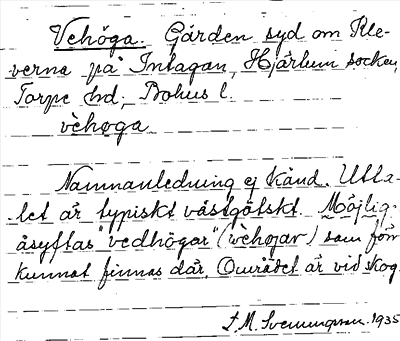 Vehöga. Gården syd om Kle-
verna på Intagan, Hjärtum socken,
Torpe hd, Bohus l.
vèhøga
Namnanledning ej känd. Utta-
let är typiskt västgötskt. Möjlig.
åsyftas "vedhögar" (vèhøjar) som för
kunnat finnas där. Området är vid skog.
S. M. Svenungsson. 1935